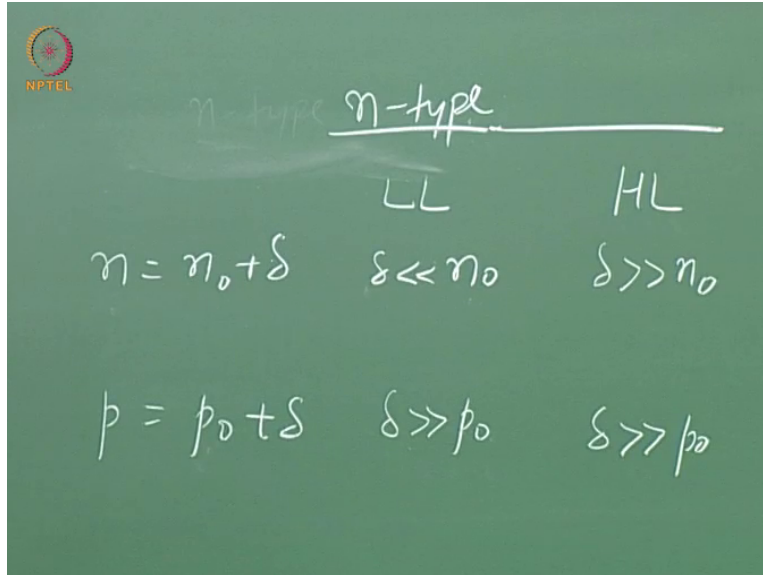 NPTEL
n-type n-type
LL HL
n = n₀ + δ δ << n₀ δ >> n₀
p = p₀ + δ δ >> p₀ δ >> p₀